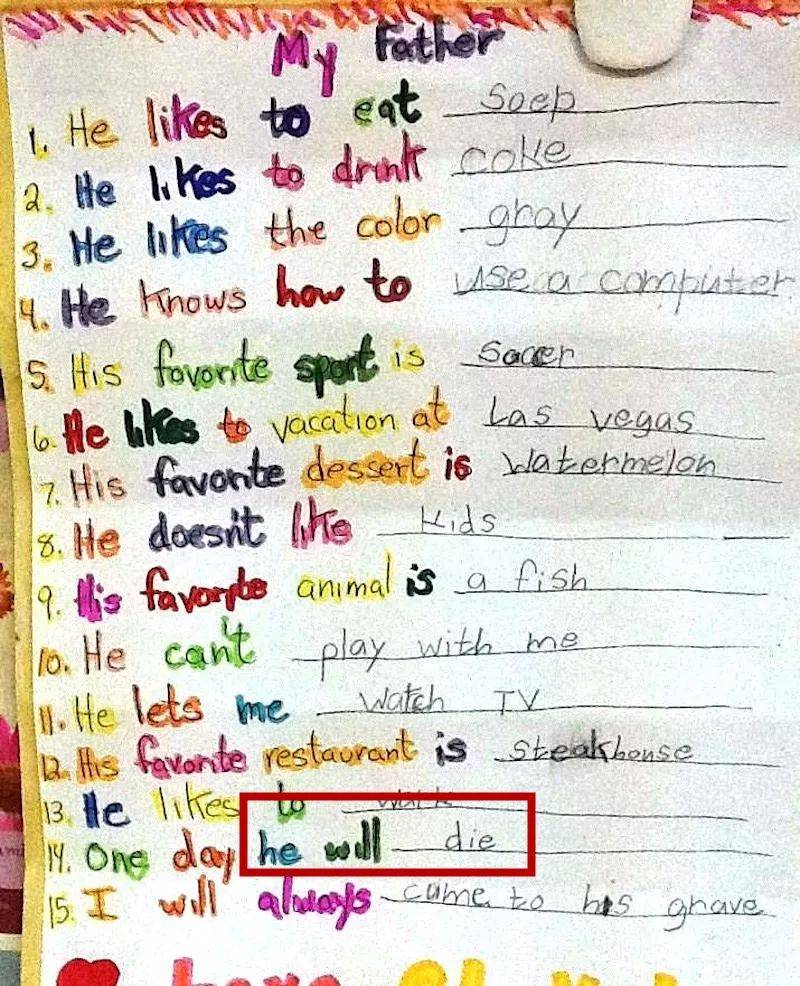 My Father
1. He likes to eat Soep
2. He likes to drink coke
3. He likes the color gray
4. He knows how to use a computer
5. His favorite sport is Soccer
6. He likes to vacation at Las vegas
7. His favorite dessert is Watermelon
8. He doesn't like kids
9. His favorite animal is a fish
10. He can't play with me
11. He lets me watch TV
12. His favorite restaurant is steakhouse
13. He likes to work
14. One day he will die
15. I will always come to his grave